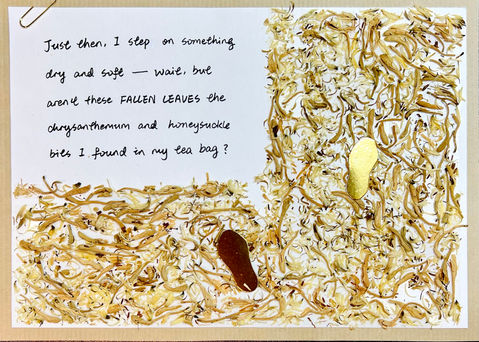 Just then, I step on something
dry and soft — wait, but
aren't these FALLEN LEAVES the
chrysanthemum and honeysuckle
bits I found in my tea bag?